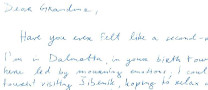 Dear Grandma,
Have you ever felt like a second-
I'm in Dalmatia, in your birth town
here led by mourning emotions, I could
toward visiting Šibenik, hoping to relax